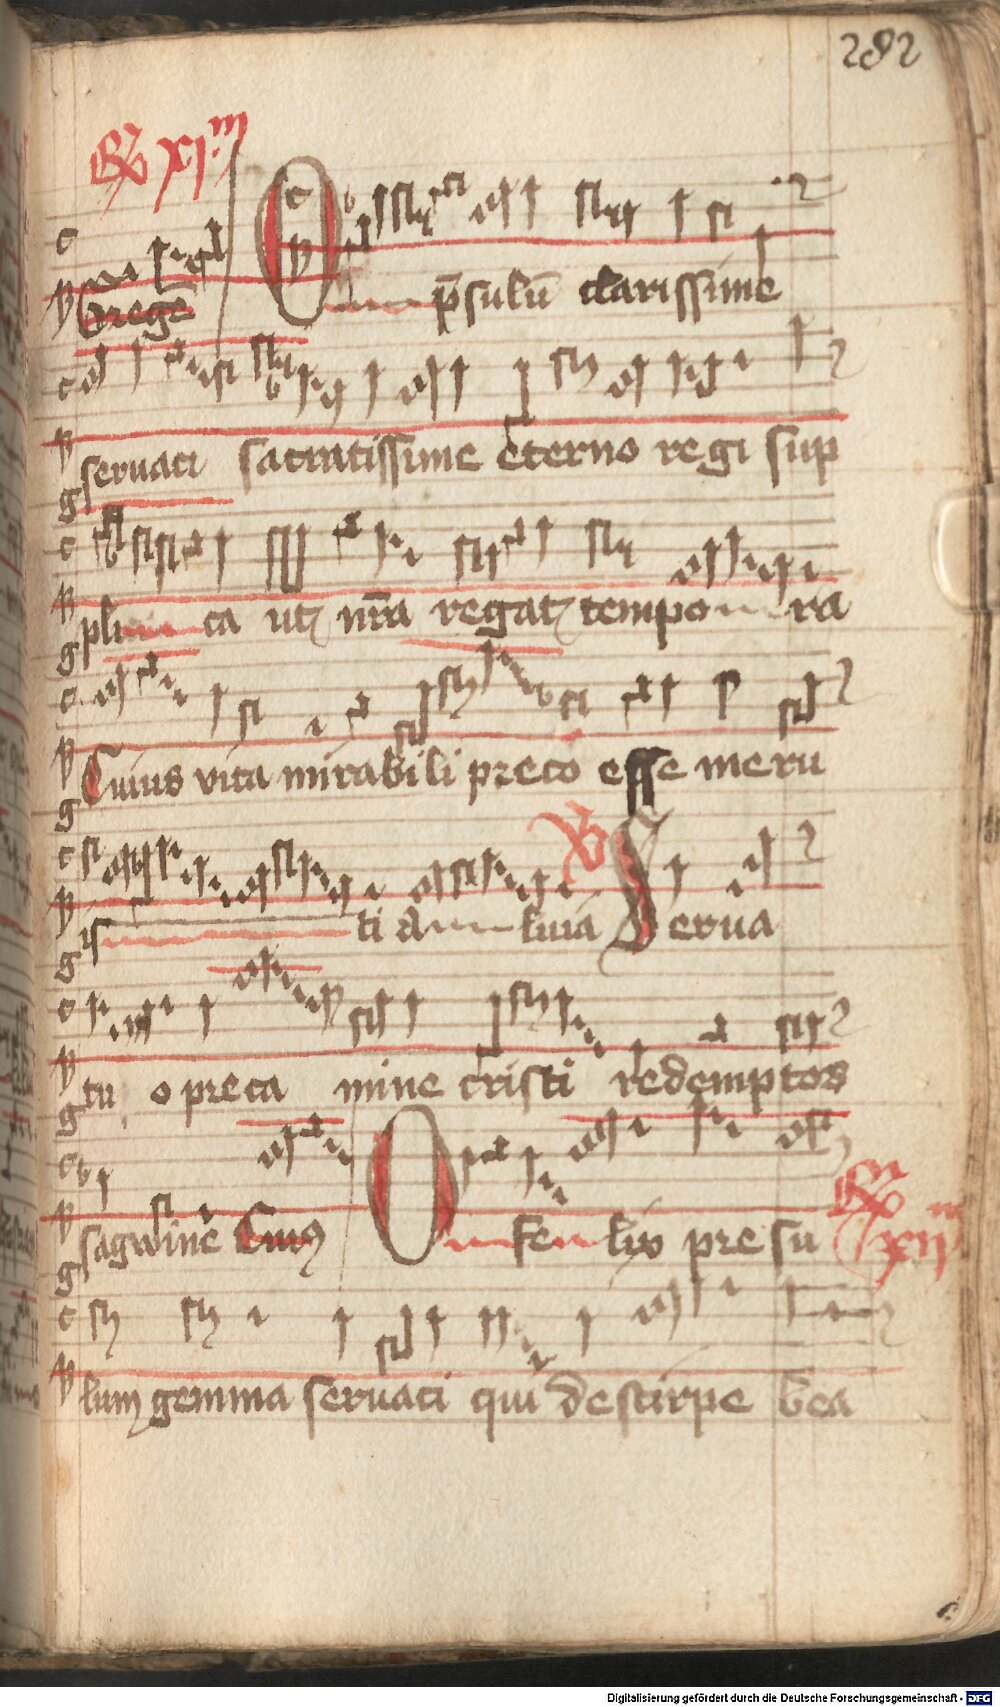 282
Rx xjm
Grege O p̄sulū clarissime
seruaci sacratissime eterno regi sup
pli ca ut nr̄a regat tempo ra
Cuius vita mirabili preco esse meru
is ti a luia V Serua
tu o preca mine cristi redemptos
sagwine Cuiꝰ O fe lix presu Rx xij
lum gemma seruaci qui de stirpe bea
Digitalisierung gefördert durch die Deutsche Forschungsgemeinschaft - DFG